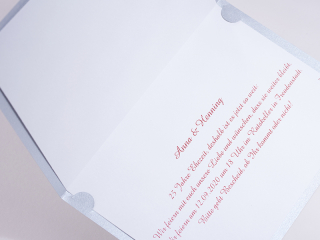 Anna & Henning
25 Jahre Ehezeit, deshalb ist es jetzt so weit:
Wir feiern mit euch unsere Liebe und wünschen, dass sie weiter bleibt.
Wir feiern am 12.09.2020 um 18 Uhr im Ratskeller in
Bitte gebt Bescheid, ob Ihr kommt oder nicht!